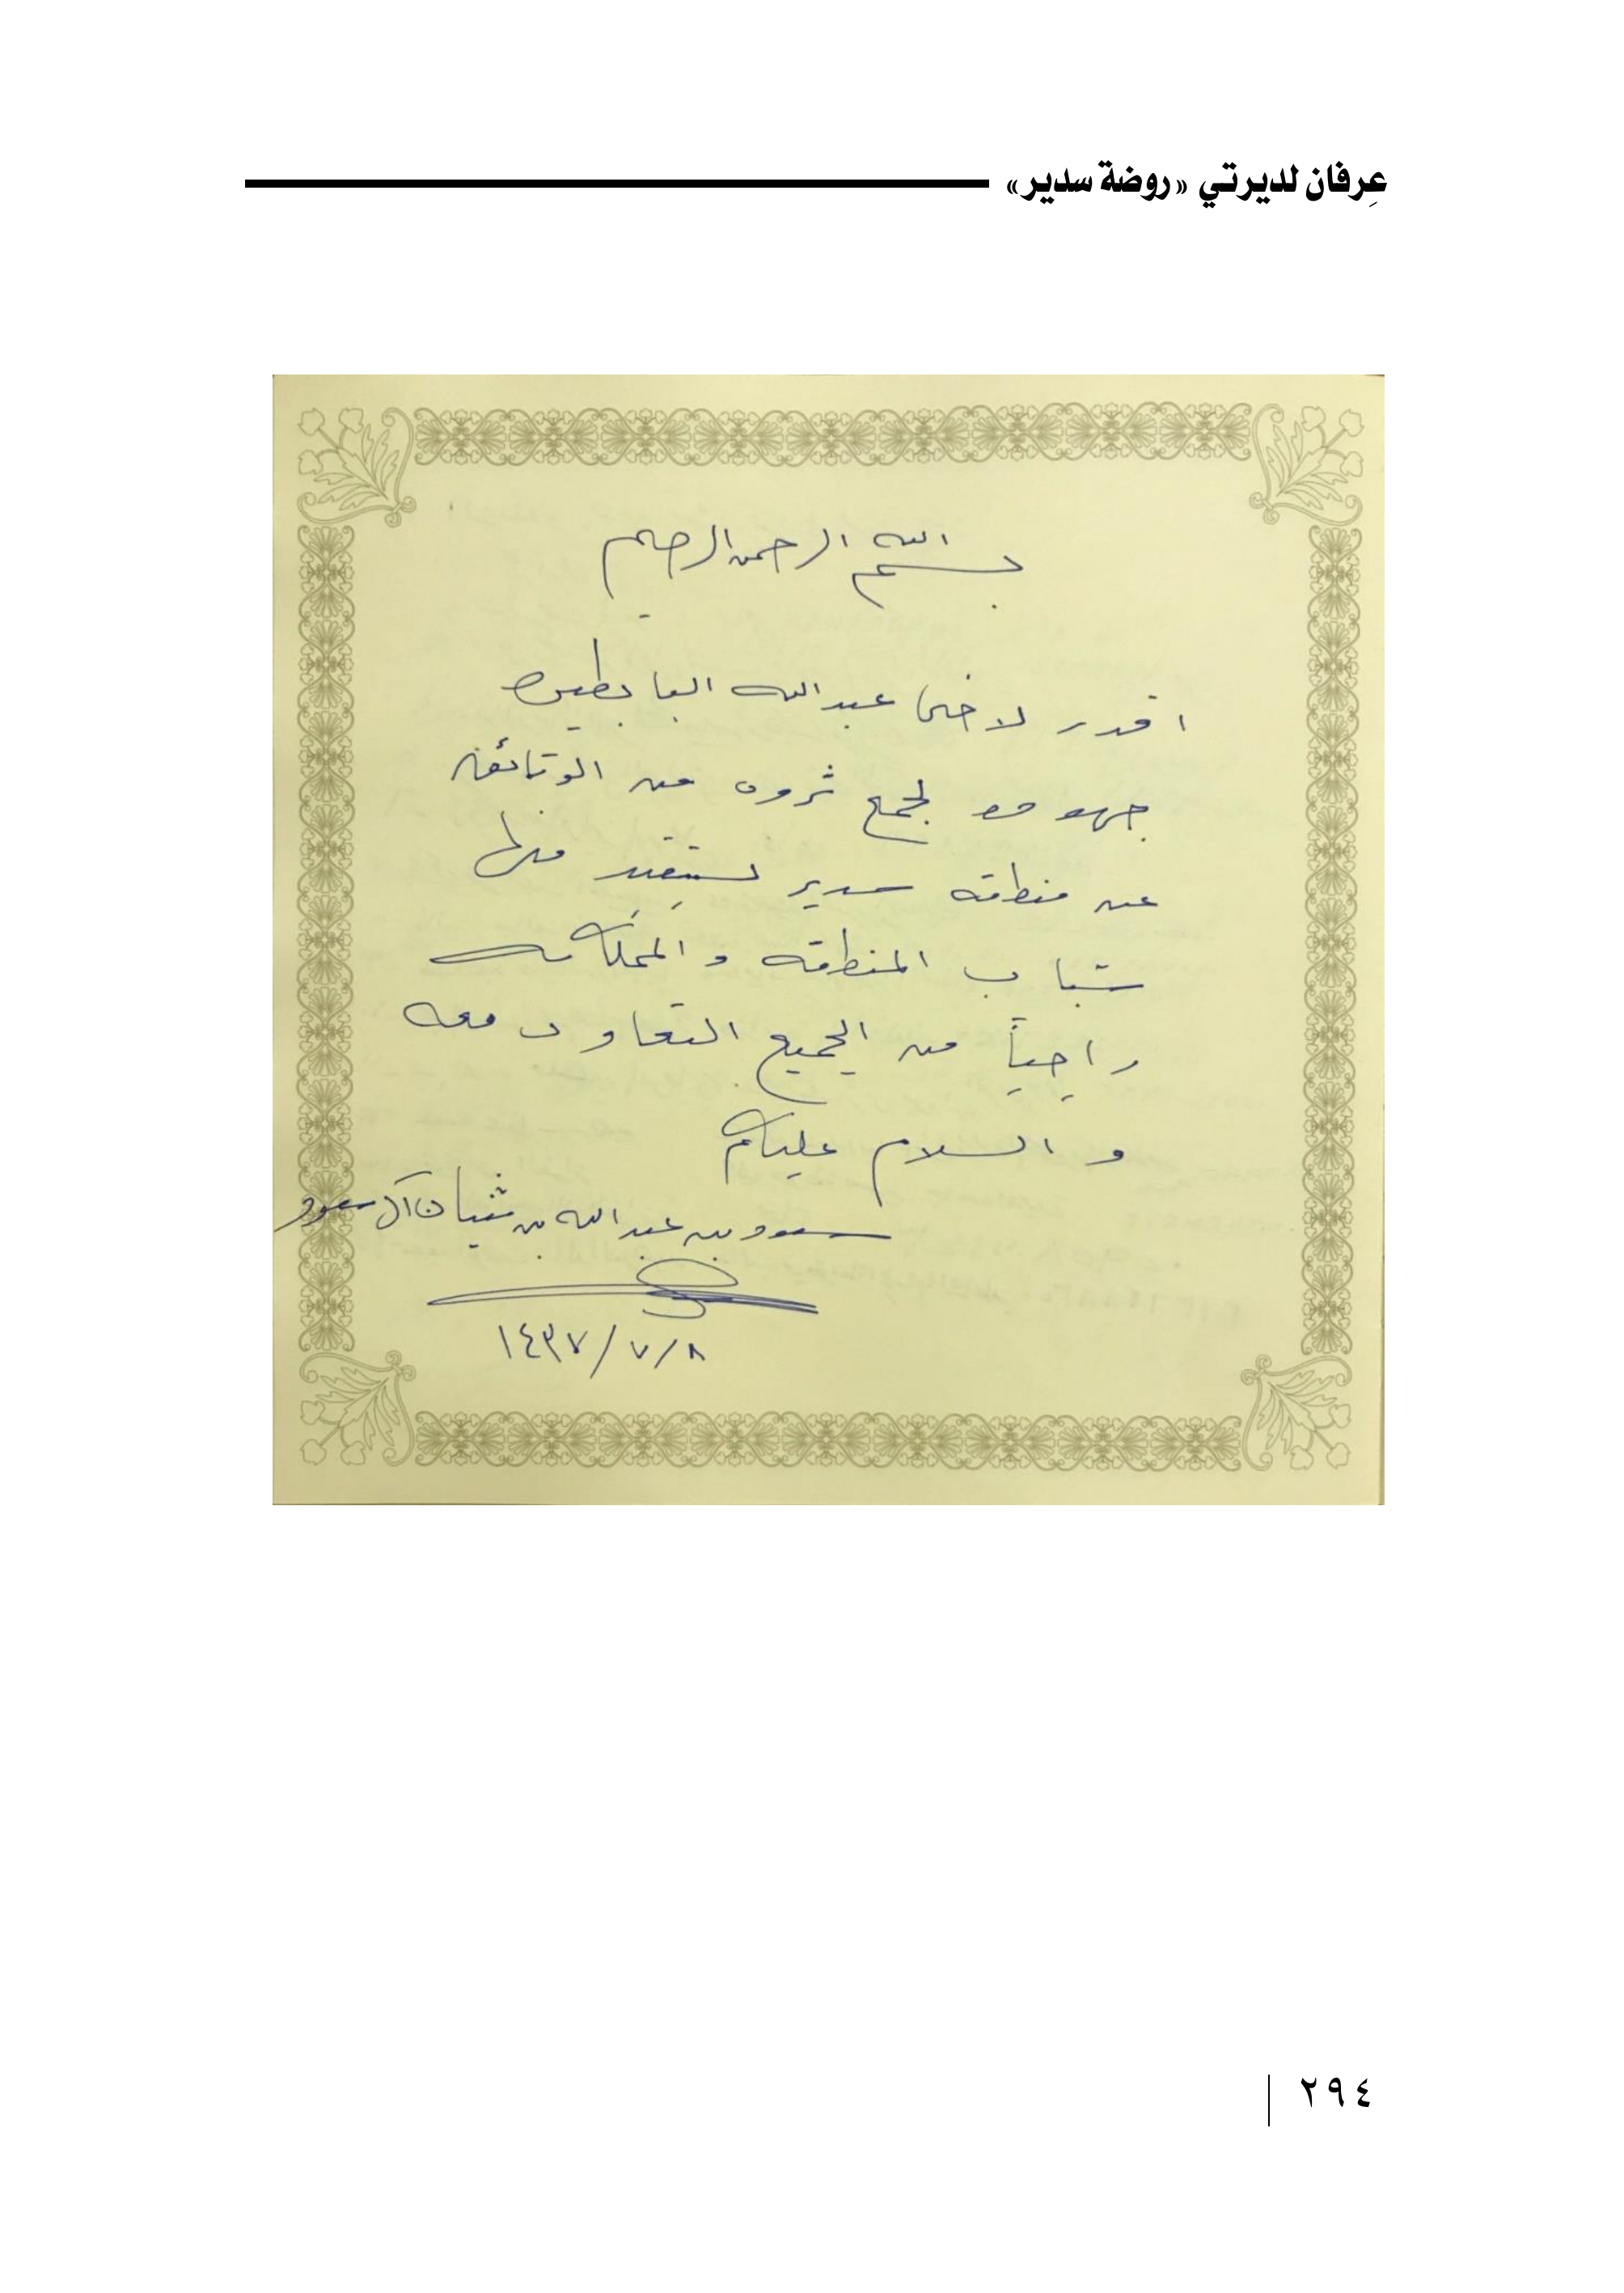 عِرفان لديرتي «روضة سدير»
بسم الله الرحمن الرحيم
اقدر لاخي عبدالله البابطين
جهوده لجمع ثروه من الوثائق
عن منطقة سدير ليستفيد منها
شباب المنطقة والمملكة
راجياً من الجميع التعاون معه
والسلام عليكم
سعود بن عبدالله بن ثنيان آل سعود
١٤٣٧/٧/٨
٢٩٤